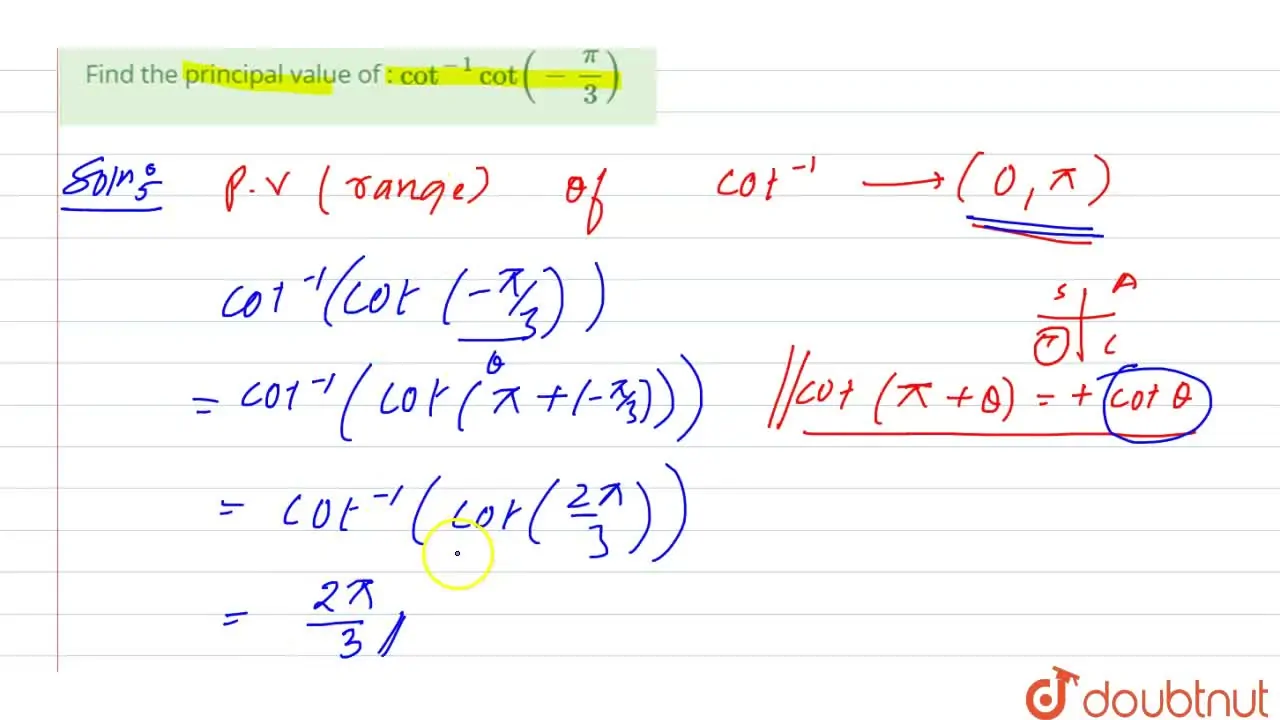 Find the principal value of : cot⁻¹ cot(−π/3)
Soln: P.V (range) of cot⁻¹ → (0, π)
cot⁻¹(cot(−π/3))
θ
S A
T C
= cot⁻¹(cot(π + (−π/3))) // cot(π + θ) = + cot θ
= cot⁻¹(cot(2π/3))
= 2π/3 //
doubtnut